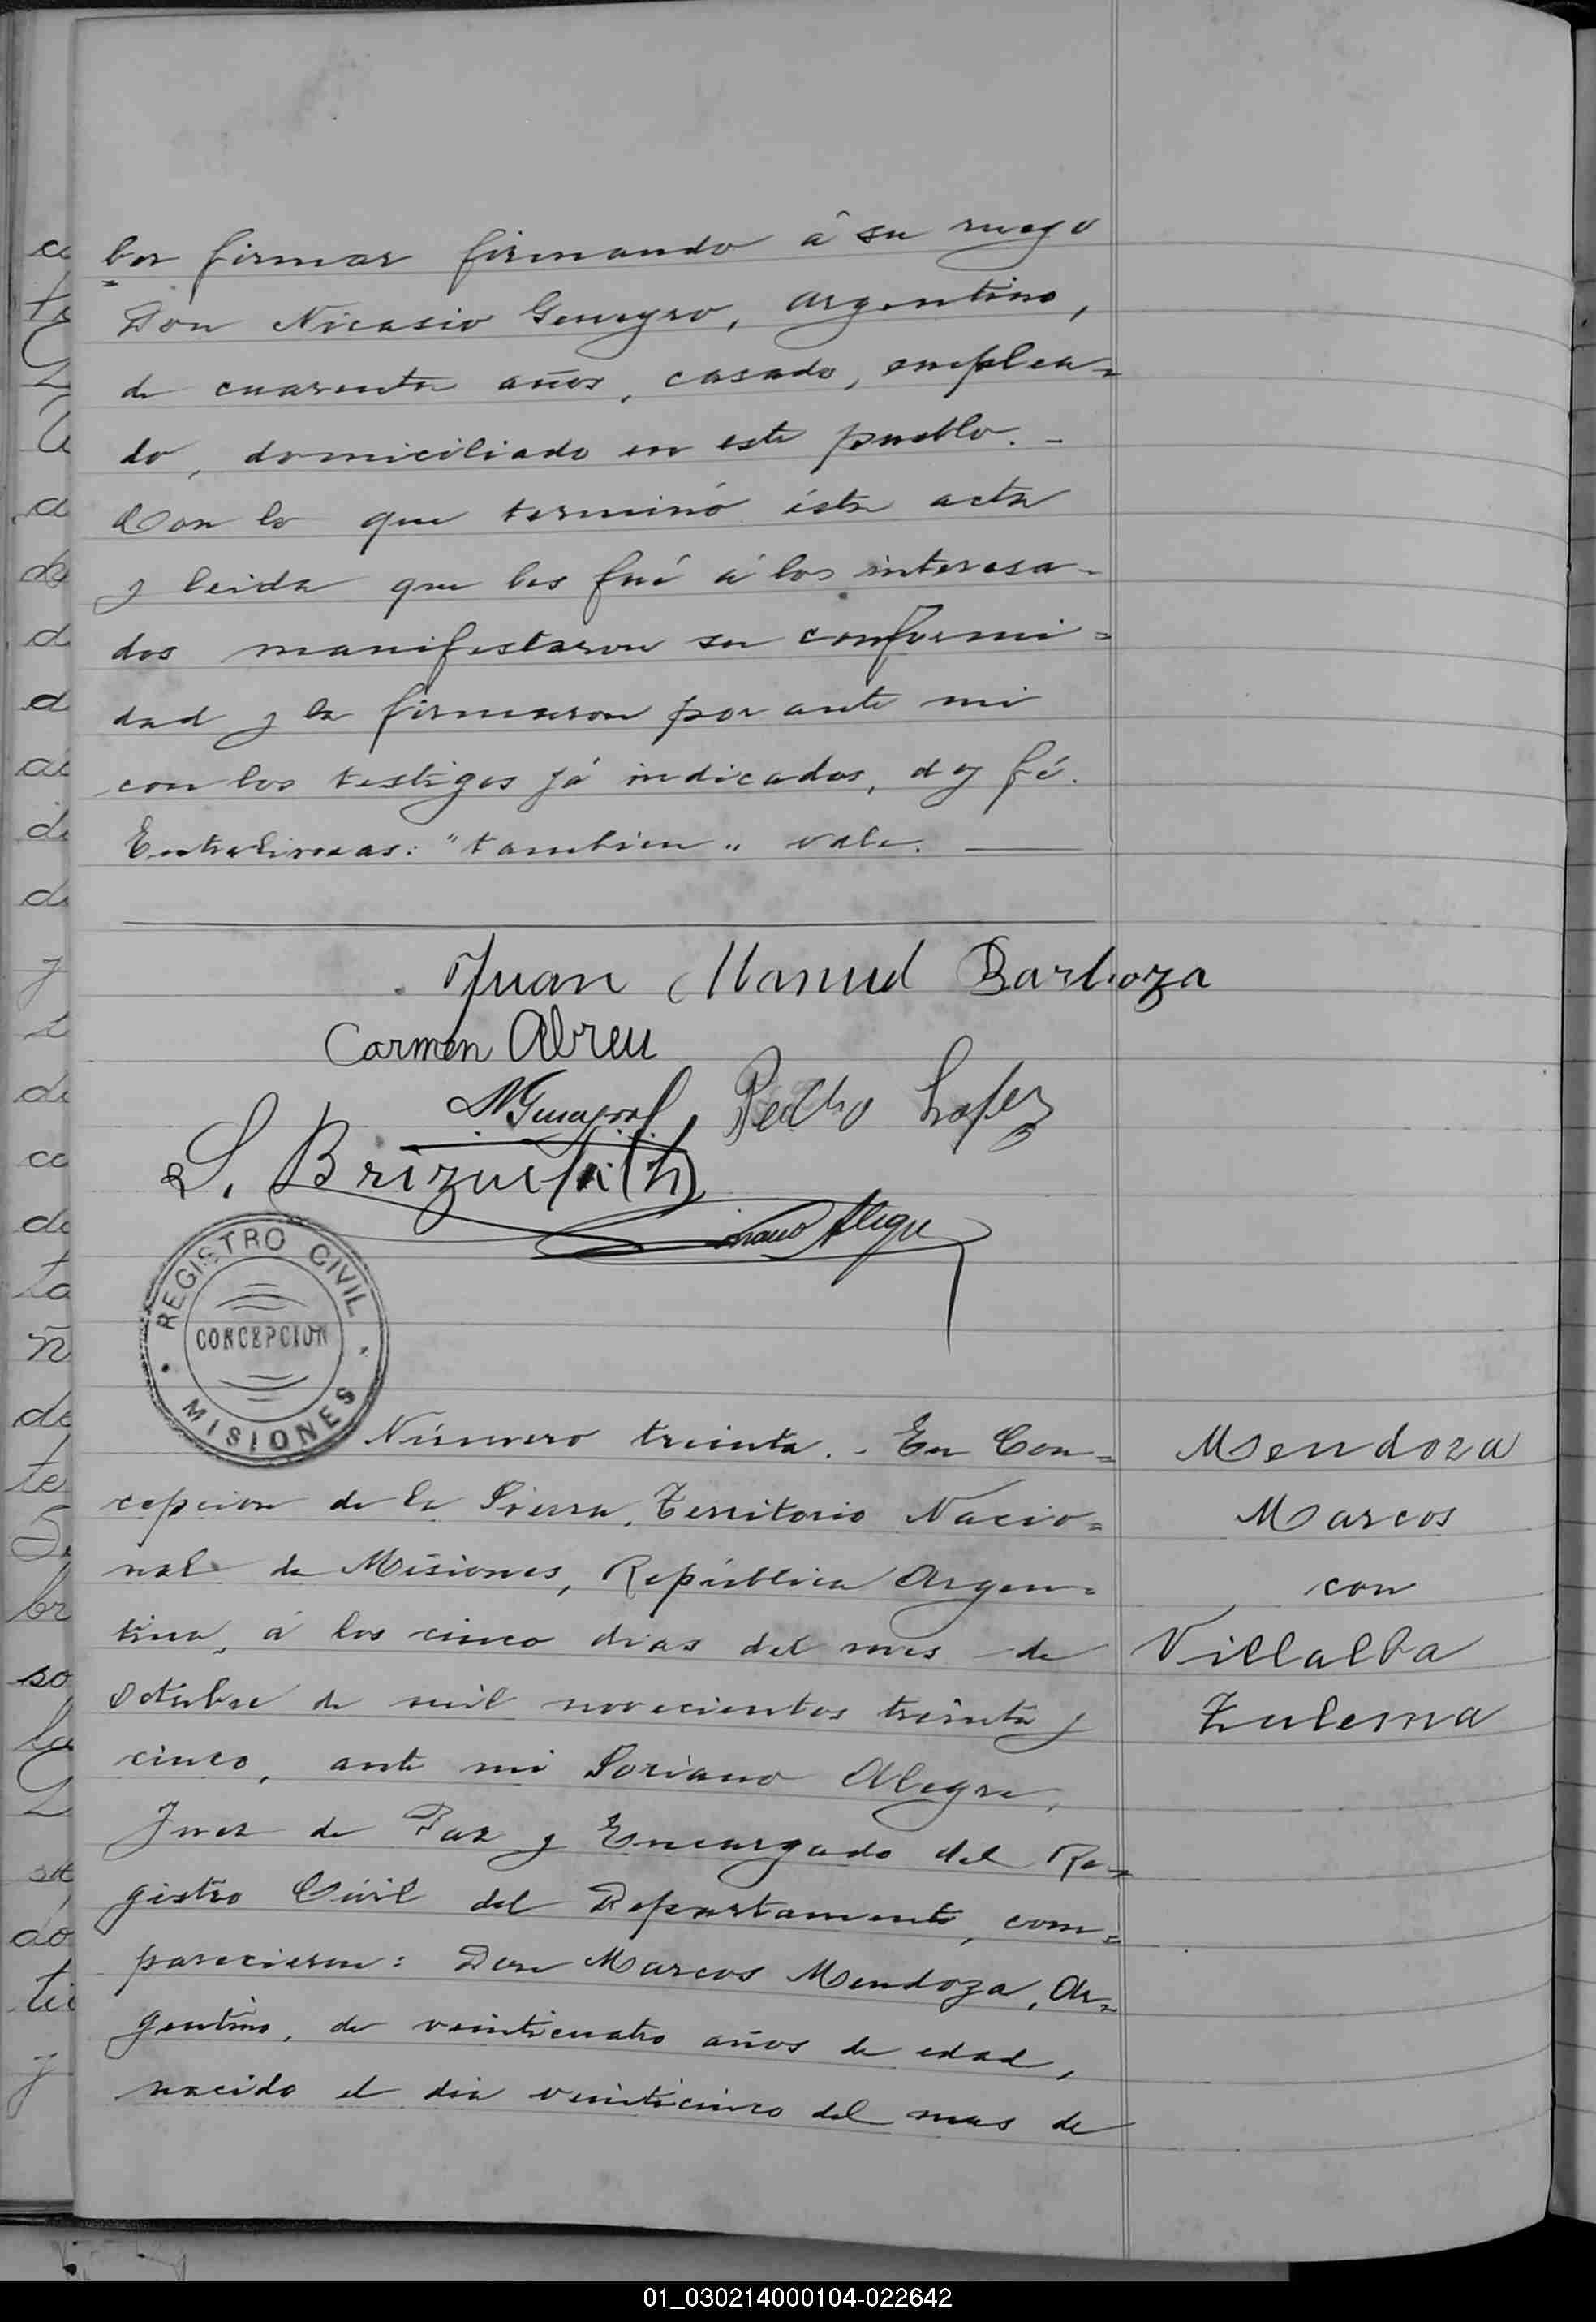 ber firmar firmando á su ruego
Don Nicasio Genagro, argentino,
de cuarenta años, casado, emplea=
do, domiciliado en este pueblo. -
Con lo que terminó ésta acta
y leida que les fué á los interesa=
dos manifestaron su conformi=
dad y la firmaron por ante mi
con los testigos yá indicados, doy fé.
Entrelineas: "tambien" vale.
Juan Manuel Barboza
Carmen Abreu
Pedro Lopez
S. Brizuela (h)
Soriano Alegre
REGISTRO CIVIL
CONCEPCION
MISIONES
Número treinta. - En Con=
cepcion de la Sierra, Territorio Nacio=
nal de Misiones, República Argen=
tina, á los cinco dias del mes de
Octubre de mil novecientos treinta y
cinco, ante mi Soriano Alegre,
Juez de Paz y Encargado del Re=
gistro Civil del Departamento, com=
parecieron: Don Marcos Mendoza, Ar=
gentino, de veinticuatro años de edad,
nacido el dia veinticinco del mes de
Mendoza
Marcos
con
Villalba
Zulema
01_030214000104-022642